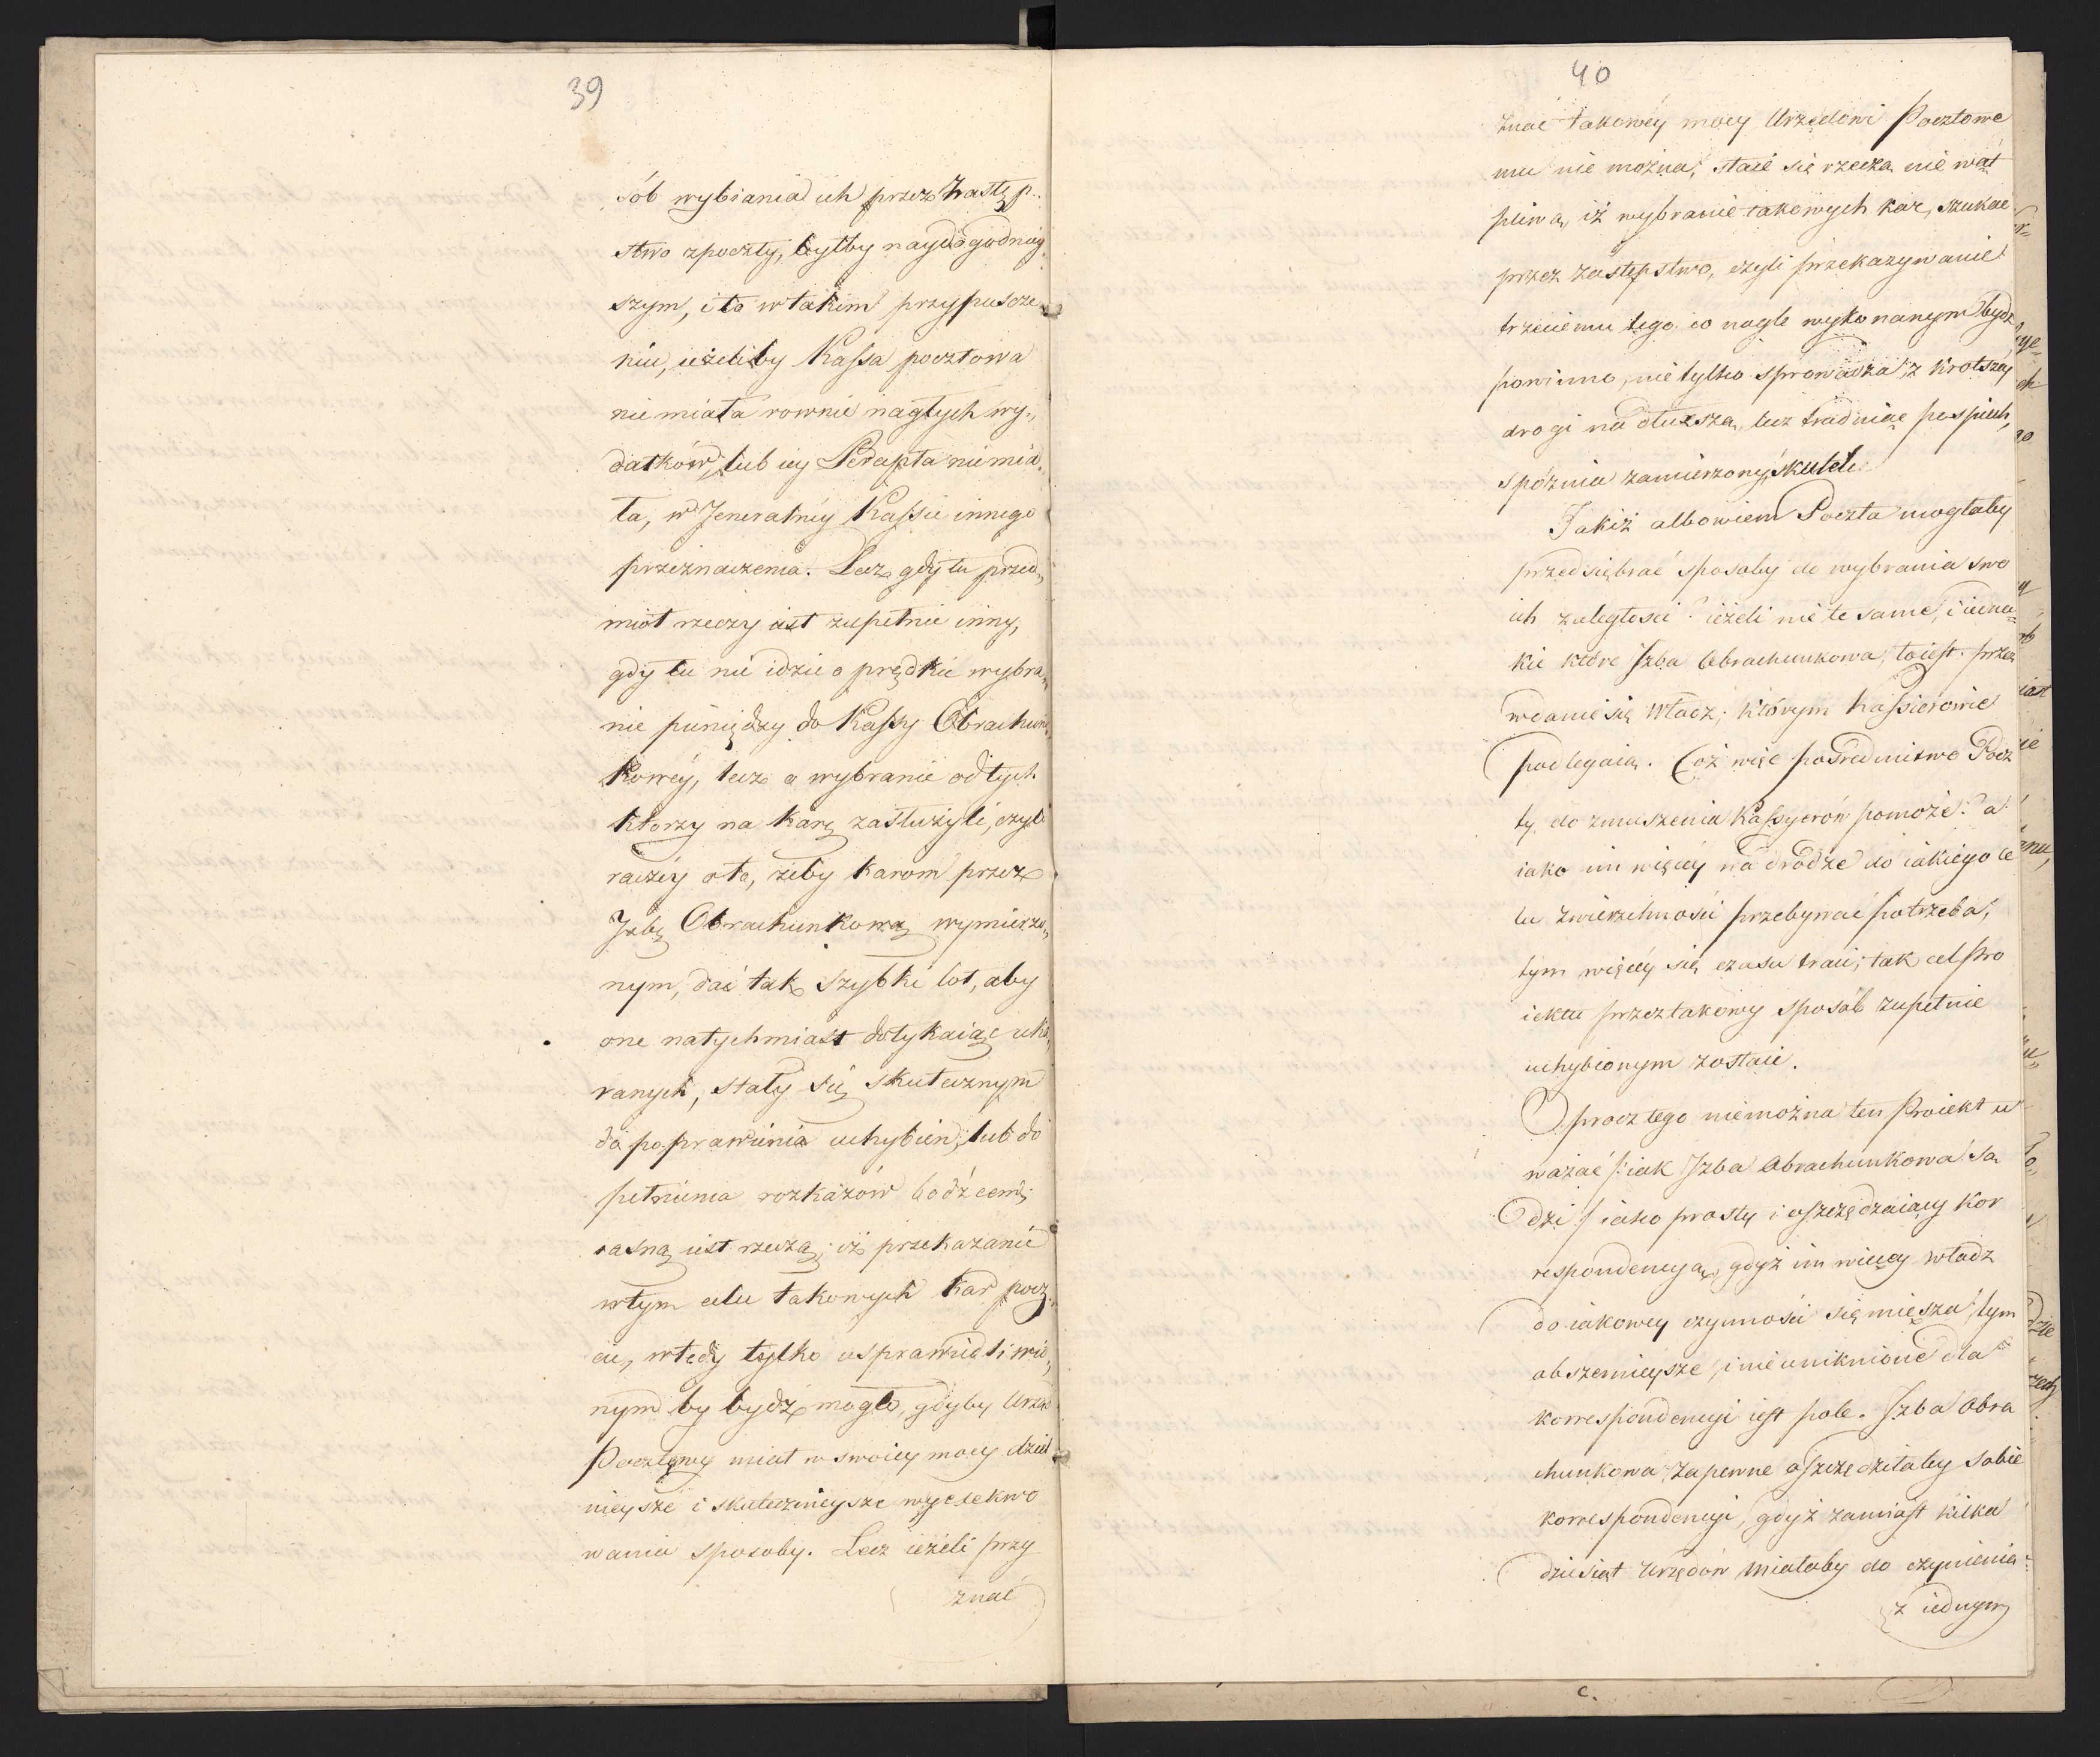 39
sób wybiania ich przez Zastęp„
stwo zpoczty, byłby naydogodniey„
szym, i to w takim przypuszcze„
niu, ieżeliby Kassa pocztowa
nie miała rownie nagłych wy„
datków, lub iey Percepta niemia„
ła, w Jeneralney Kassie innego
przeznaczenia. Lecz gdy tu przed„
miot rzeczy iest zupełnie inny,
gdy tu nie idzie o prędkie wybra„
nie pieniędzy do Kassy Obrachun„
kowéy, lecz o wybranie od tych
którzy na karę zasłużyli, czyli
raczéy oto, żeby karom przez
Izbę Obrachunkową wymierzo„
nym, dać tak szybki lot, aby
one natychmiast dotykaiąc uka„
ranych, stały się skutecznym
do poprawienia uchybień, lub do
pełnienia rozkazów bodźcem;
iasną iest rzeczą; iż przekazanie
w tym celu takowych kar pocz„
cie, wtedy tylko usprawiedliwio„
nym by bydź mogło, gdyby Urząd
Pocztowy miał w swoiey mocy dziel
nieysze i skutecznieysze wyexekwo
wania sposoby. Lecz ieżeli przy
znać
40
znać takowéy mocy Urzędowi Pocztowe
mu nie można, staie się rzeczą nie wąt
pliwą, iż wybranie takowych kar, szukać
przez zastępstwo, czyli przekazywanie
trzeciemu tego co nagle wykonanym bydź
powinno, nie tylko sprowadza z krotszéy
drogi na dłuższą, lecz trudniąc pospiech,
spóznia zamierzony skutek.
Jakiż albowiem Poczta mogłaby
przedsiębrać sposoby do wybrania swo
ich zaległosci? ieżeli nie te same, i iedna„
kie które Izba Obrachunkowa, to iest. przez
wdanie się Władz, którym Kassierowie
podlegaią. Coż więc pośrednictwo Pocz
ty do zmuszenia Kassyerów pomoże? a
iako im więcéy na drodze do iakiego ce
lu zwierzchności przebywać potrzeba,
tym więcéy się czasu traci, tak cel Pro
iektu przez takowy sposób zupełnie
uchybionym zostaie.
Oprócz tego niemożna ten Proiekt u
ważać /: iak Izba Obrachunkowa są
dzi :/ iako prosty i oszczędzaiący kor
respondencyą, gdyż im więcéy władz
do iakowey czynności się miesza, tym
obszernieysze, i nieuniknione dla
korrespondencyi iest pole. Izba Obra
chunkowa zapewne oszczędziłaby sobie
korrespondencyi, gdyż zamiast kilka
dziesiąt Urzędów miałaby do czynienia
z iednym